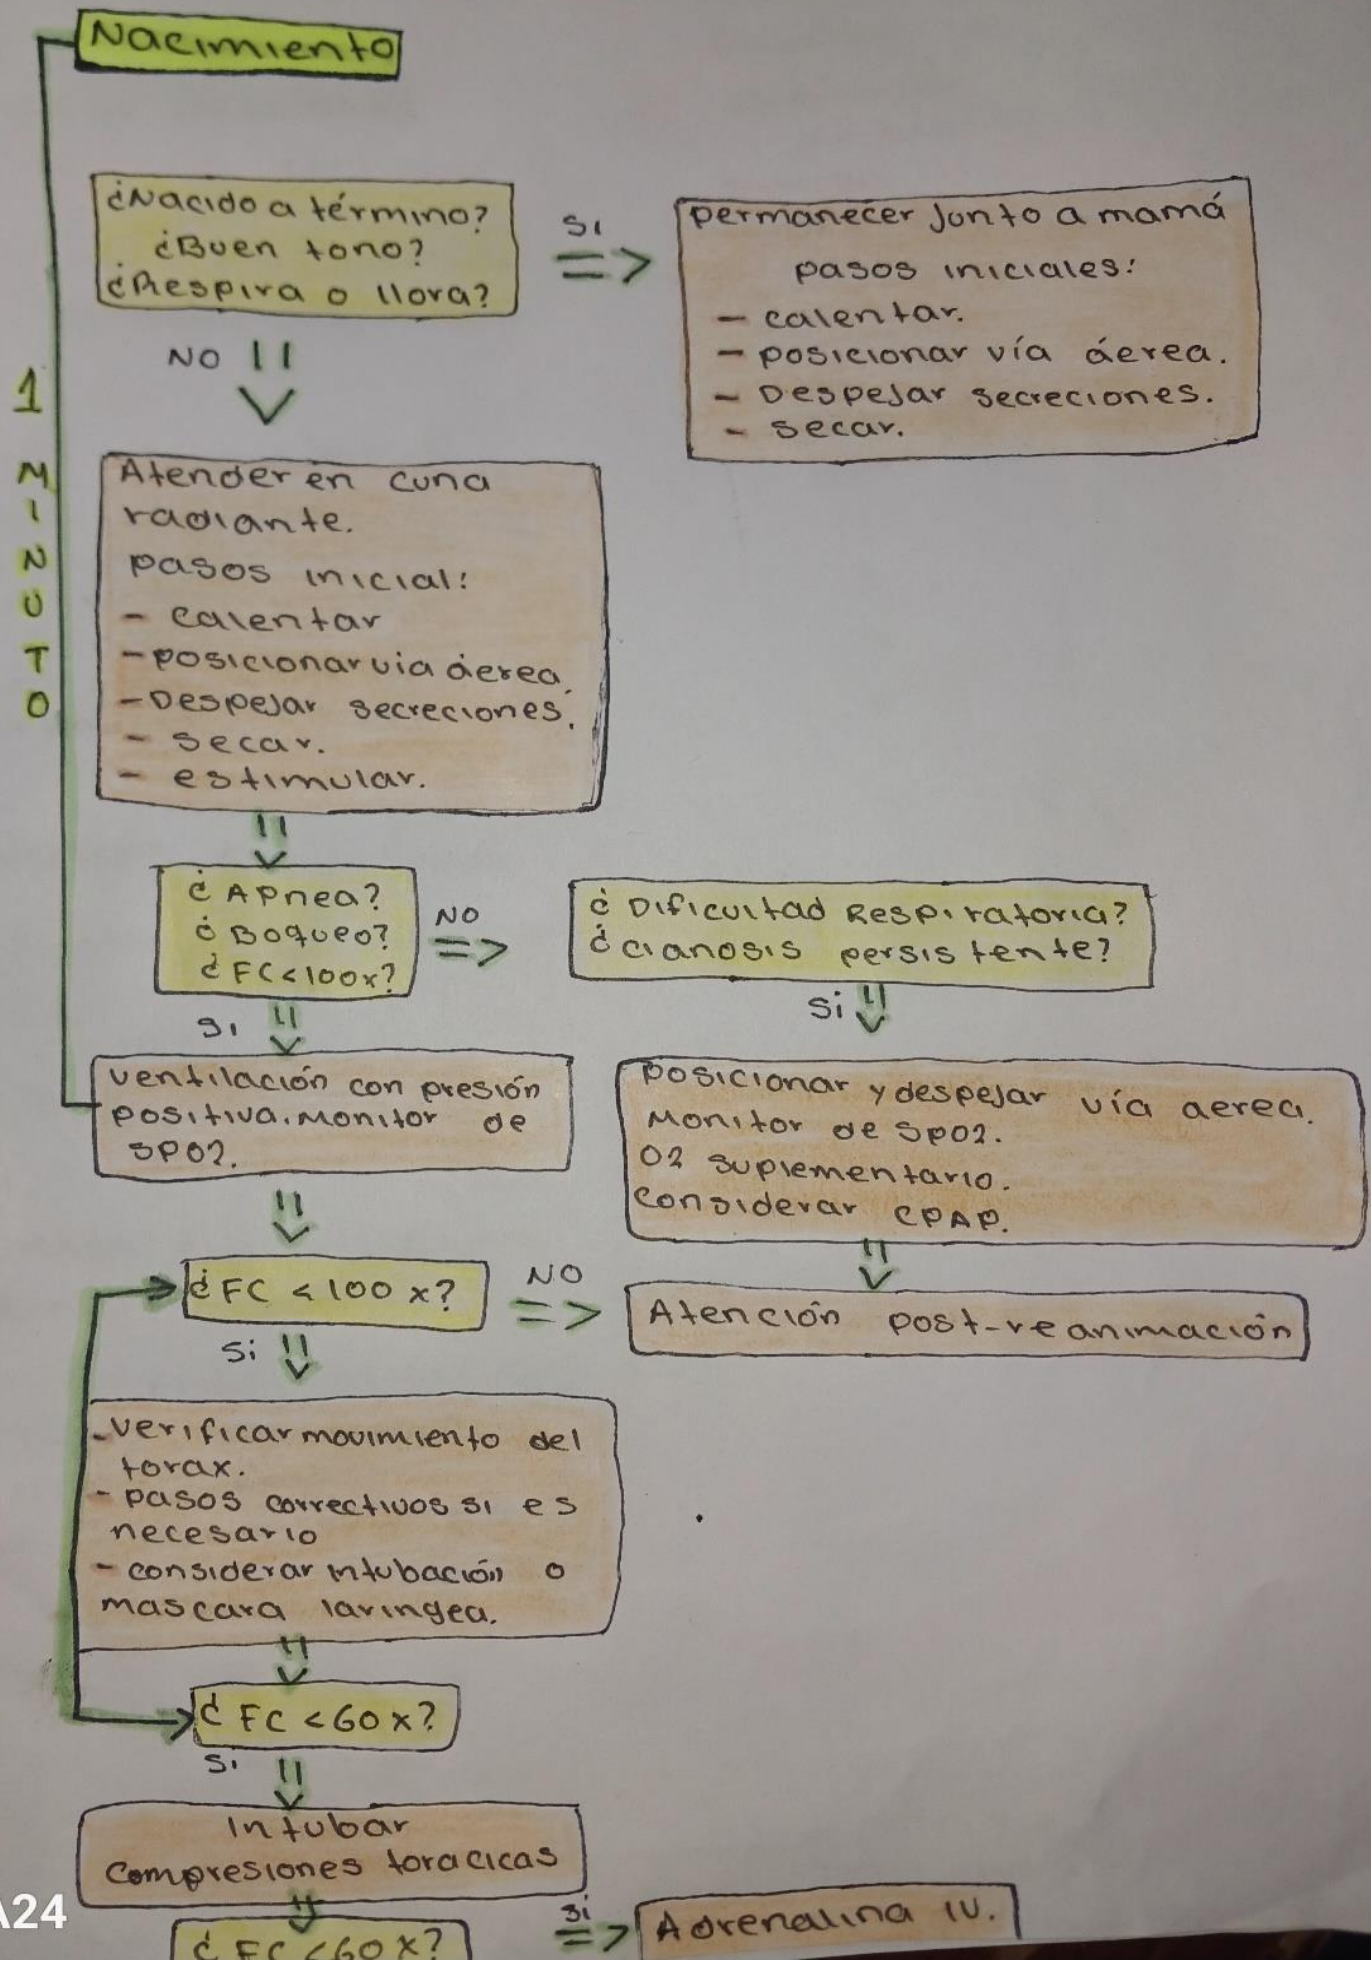 Nacimiento
¿Nacido a término?
¿Buen tono?
¿Respira o llora?
SI
permanecer junto a mamá
pasos iniciales:
- calentar.
- posicionar vía áerea.
- Despejar secreciones.
- secar.
NO
1 MINUTO
Atender en cuna
radiante.
pasos inicial:
- calentar
- posicionar via áerea.
- Despejar secreciones.
- secar.
- estimular.
¿Apnea?
¿Boqueo?
¿FC<100x?
NO
¿Dificultad Respiratoria?
¿cianosis persistente?
SI
Si
ventilación con presión
positiva. Monitor de
SPO2.
posicionar y despejar vía aerea.
Monitor de SPO2.
O2 suplementario.
considerar CPAP.
¿FC < 100 x?
NO
Atención post-reanimación
Si
- verificar movimiento del
torax.
- pasos correctivos si es
necesario
- considerar intubación o
mascara laringea.
¿FC <60 x?
Si
Intubar
compresiones toracicas
A24
¿FC <60 x?
Si
Adrenalina IV.